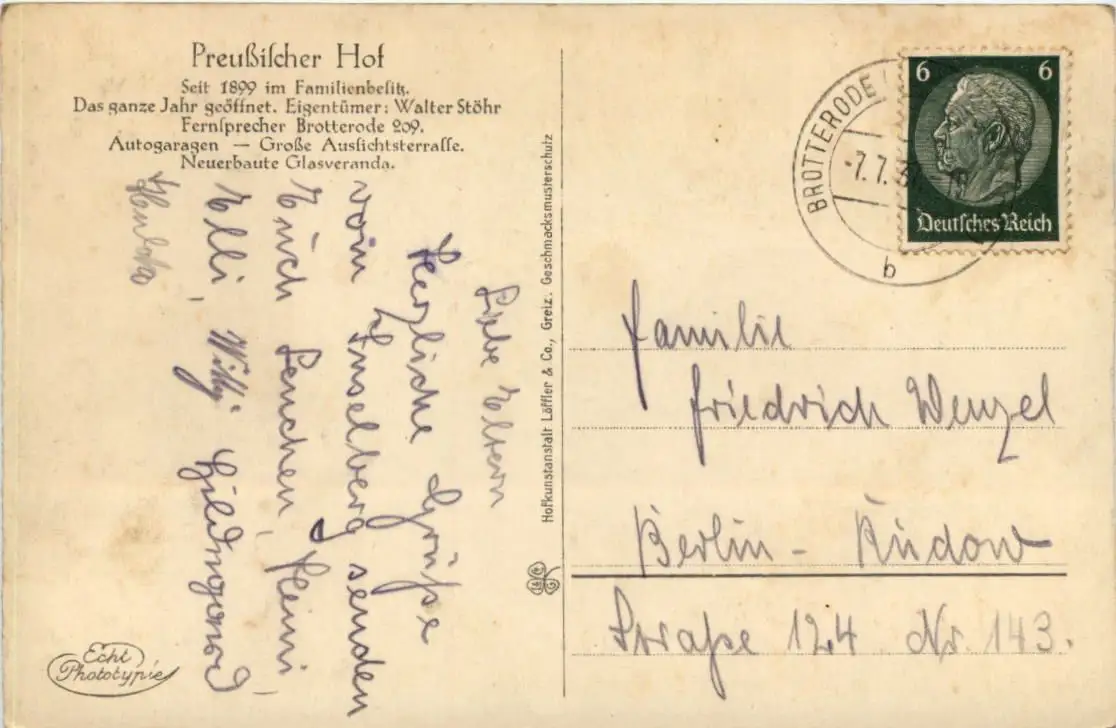 Preußischer Hof
Seit 1899 im Familienbesitz.
Das ganze Jahr geöffnet. Eigentümer: Walter Stöhr
Fernsprecher Brotterode 209.
Autogaragen — Große Aussichtsterrasse.
Neuerbaute Glasveranda.
Liebe Eltern
Herzliche Grüße
vom Inselberg senden
Euch Lenchen, Henni,
Elli, Willi Hildegard
Echt
Phototypie
Hofkunstanstalt Löffler & Co., Greiz. Geschmacksmusterschutz
BROTTERODE
-7.7.
b
6 6
Deutsches Reich
Familie
Friedrich Wenzel
Berlin - Rudow
Straße 124 Nr. 143.